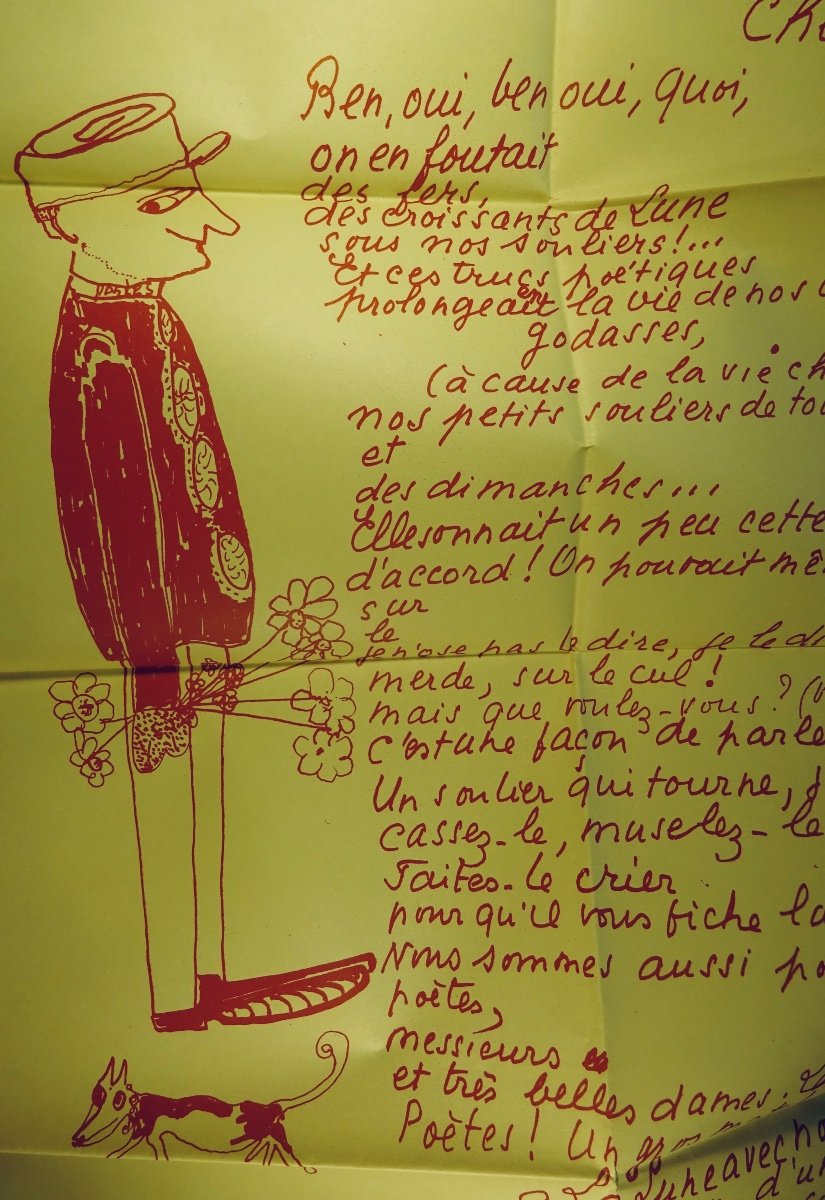 Ben, oui, ben oui, quoi,
on en foutait
des fers,
des croissants de Lune
sous nos souliers!...
Et ces trucs poétiques
prolongeait en la vie de nos
godasses,
(à cause de la vie
nos petits souliers de
et
des dimanches...
Elle sonnait un peu cette
d'accord! On pouvait
sur
le
je n'ose pas le dire, je le
merde, sur le cul!
mais que voulez-vous?
c'est une façon de
Un soulier qui tourne,
cassez-le, muselez-le
Faites-le crier
pour qu'il vous fiche
Nous sommes aussi
poètes,
messieurs
et très belles dames.
Poètes! Un
Lune avec
d'un